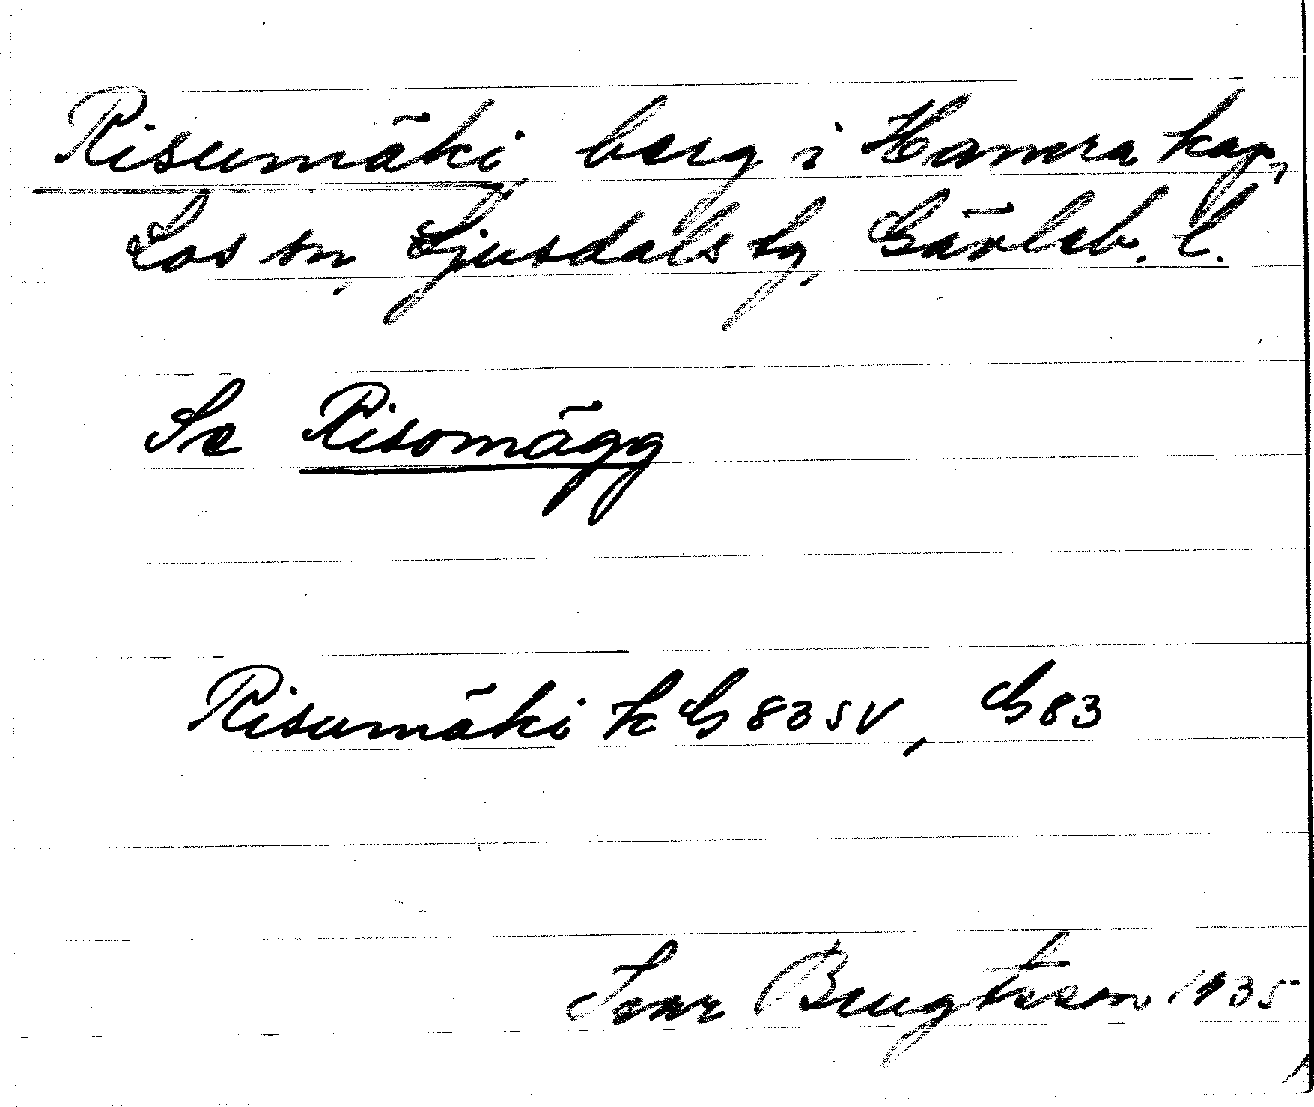 Risumäki berg i Hamra kap,
Los sn, Ljusdals tg, Gävleb. l.
Se Risomägg
Risumäki k G 83 SV, G 83
Ivar Bengtsson 1935